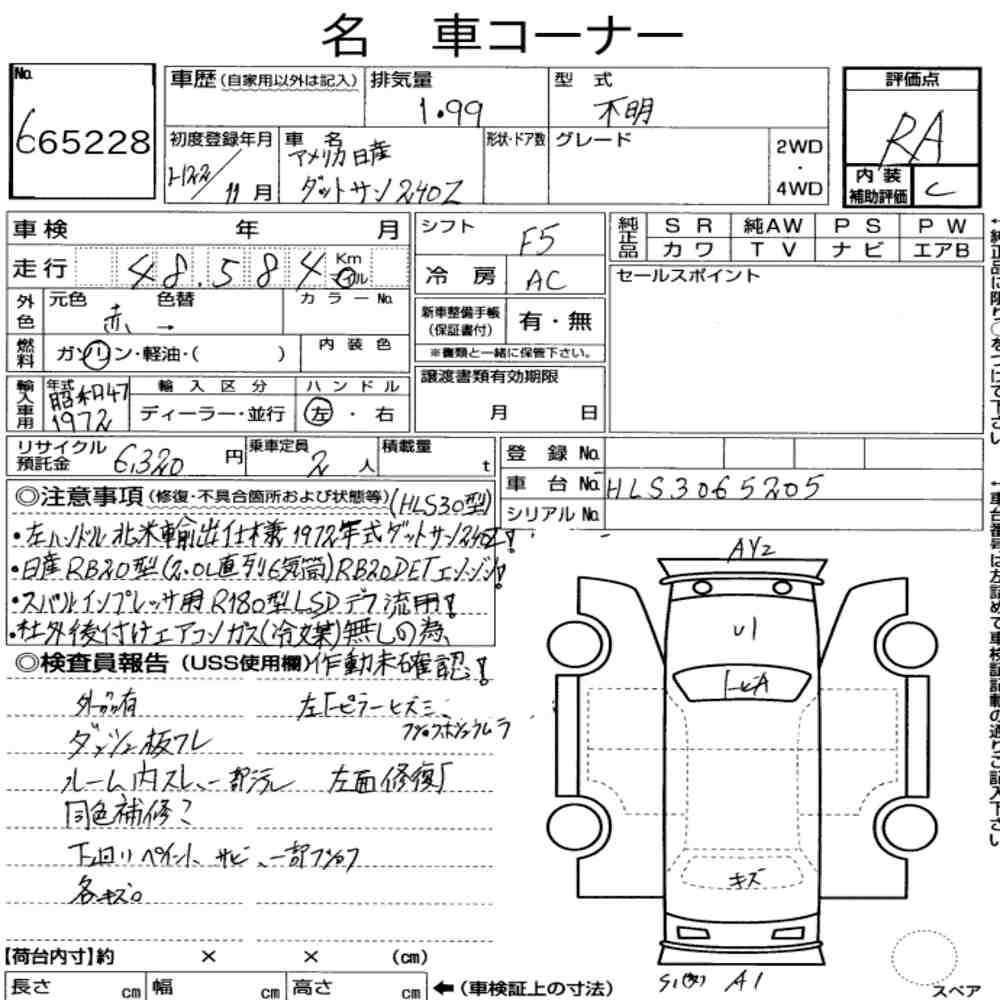 名 車コーナー
No. 665228
車歴(自家用以外は記入) 排気量 1.99 型式 不明
評価点 RA
内装補助評価 C
初度登録年月 H22/11月 車名 アメリカ日産 ダットサン240Z 形状・ドア数 グレード 2WD・4WD
車検 年 月
走行 48,584 Km マイル
シフト F5
冷房 AC
純正品 SR 純AW PS PW
カワ TV ナビ エアB
セールスポイント
外色 元色 赤 色替 → カラーNo.
燃料 ガソリン・軽油・( ) 内装色
新車整備手帳(保証書付) 有・無
※書類と一緒に保管下さい。
輸入車用 年式 昭和47 1972 輸入区分 ディーラー・並行 ハンドル 左・右
譲渡書類有効期限 月 日
リサイクル預託金 6,320円 乗車定員 2人 積載量 t
登録No.
車台No. HLS3065205
シリアルNo.
◎注意事項(修復・不具合箇所および状態等)(HLS30型)
・左ハンドル北米輸出仕様1972年式ダットサン240Z!
・日産RB20型(2.0L直列6気筒)RB20DETエンジン!
・スバルインプレッサ用R180型LSDデフ流用!
・社外後付けエアコンガス(冷媒)無しの為、
◎検査員報告(USS使用欄)作動未確認!
外品有
左Fピラーヒズミ
ダッシュ板ワレ
ルーム内スレ、一部汚レ 左面修復
同色補修
下回りペイント、サビ、一部
各キズ
AY2
U1
トビA
キズ
S1 A1
スペア
【荷台内寸】約 × × (cm)
長さ cm 幅 cm 高さ cm ←(車検証上の寸法)
↑純正品に限り○をつけて下さい
↑車台番号は左詰めで車検証記載の通りご記入下さい